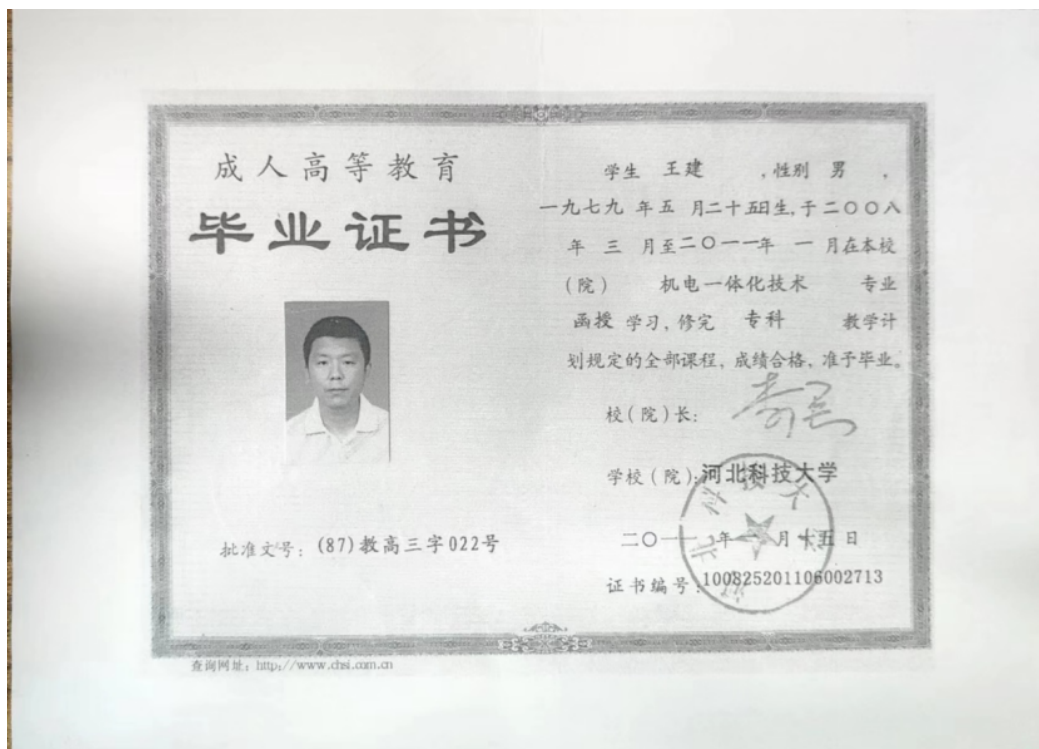 成人高等教育
毕业证书
批准文号：(87)教高三字022号
学生 王建 ，性别 男 ，
一九七九 年五 月二十五日生，于二〇〇八
年 三 月至二〇一一年 一 月在本校
（院） 机电一体化技术 专业
函授 学习，修完 专科 教学计
划规定的全部课程，成绩合格，准予毕业。
校（院）长：
学校（院）：河北科技大学
二〇一一年一月十五日
证书编号：100825201106002713
河北科技大学
查询网址：http://www.chsi.com.cn